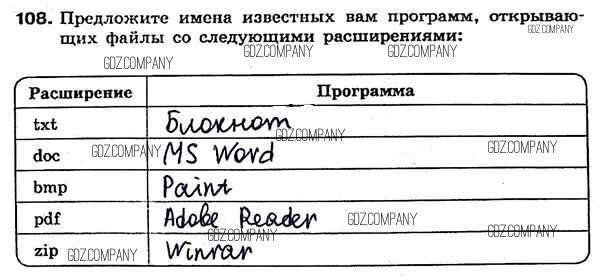 108. Предложите имена известных вам программ, открываю-
щих файлы со следующими расширениями:
GDZ.COMPANY
GDZ.COMPANY
GDZ.COMPANY
Расширение Программа
GDZ.COMPANY
txt Блокнот
GDZ.COMPANY
doc MS Word
GDZ.COMPANY
GDZ.COMPANY
bmp Paint
pdf Adobe Reader
GDZ.COMPANY
GDZ.COMPANY
zip Winrar
GDZ.COMPANY